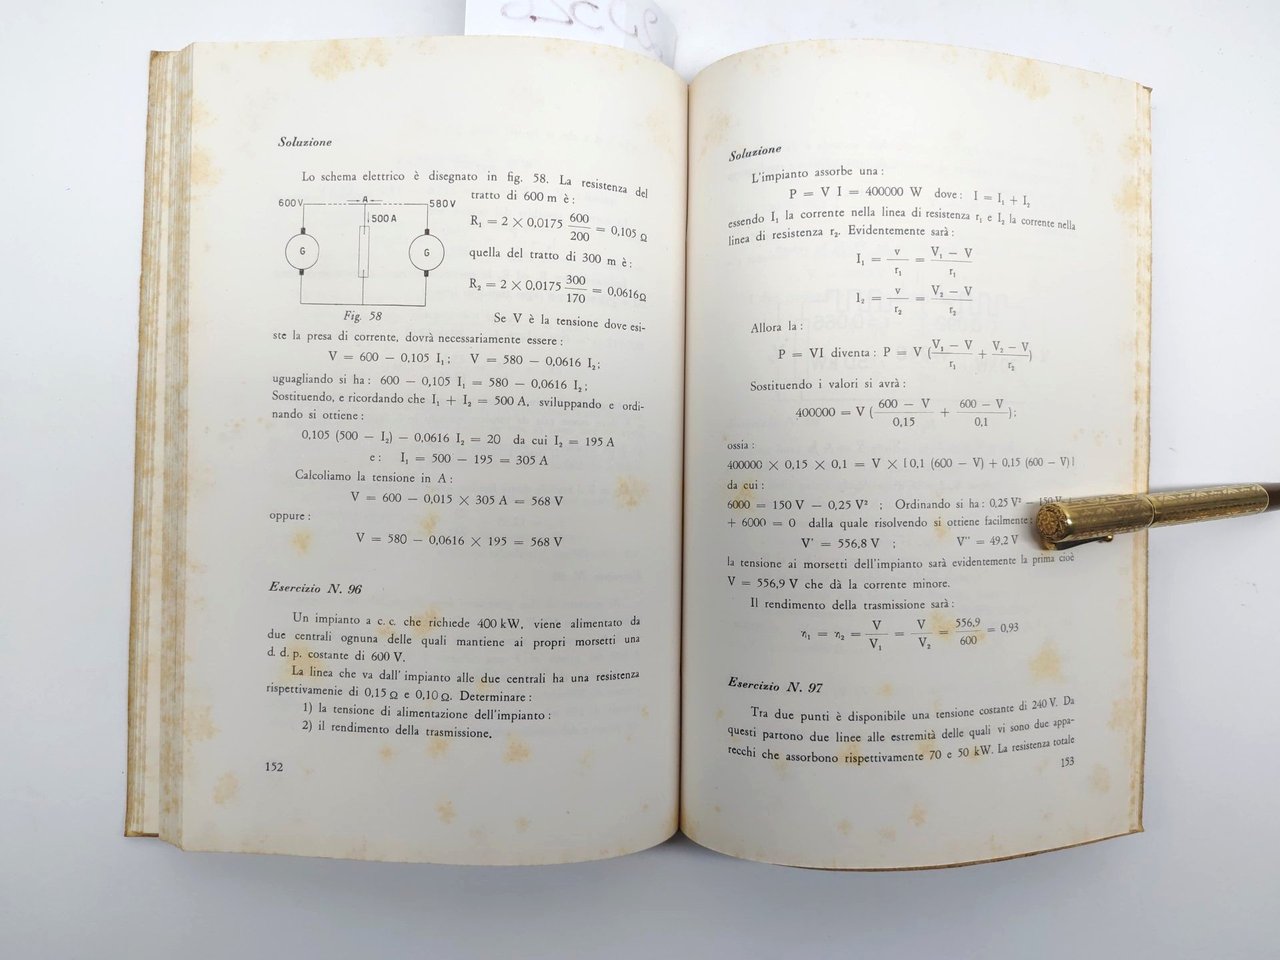 Soluzione
Lo schema elettrico è disegnato in fig. 58. La resistenza del
tratto di 600 m è:
600 V A 580 V
500 A
G G
R₁ = 2 × 0,0175 600/200 = 0,105 Ω
quella del tratto di 300 m è:
R₂ = 2 × 0,0175 300/170 = 0,0616 Ω
Fig. 58
Se V è la tensione dove esi-
ste la presa di corrente, dovrà necessariamente essere:
V = 600 — 0,105 I₁; V = 580 — 0,0616 I₂;
uguagliando si ha: 600 — 0,105 I₁ = 580 — 0,0616 I₂;
Sostituendo, e ricordando che I₁ + I₂ = 500 A, sviluppando e ordi-
nando si ottiene:
0,105 (500 — I₂) — 0,0616 I₂ = 20 da cui I₂ = 195 A
e: I₁ = 500 — 195 = 305 A
Calcoliamo la tensione in A:
V = 600 — 0,015 × 305 A = 568 V
oppure:
V = 580 — 0,0616 × 195 = 568 V
Esercizio N. 96
Un impianto a c. c. che richiede 400 kW, viene alimentato da
due centrali ognuna delle quali mantiene ai propri morsetti una
d. d. p. costante di 600 V.
La linea che va dall'impianto alle due centrali ha una resistenza
rispettivamenie di 0,15 Ω e 0,10 Ω. Determinare:
1) la tensione di alimentazione dell'impianto:
2) il rendimento della trasmissione.
152
Soluzione
L'impianto assorbe una:
P = V I = 400000 W dove: I = I₁ + I₂
essendo I₁ la corrente nella linea di resistenza r₁ e I₂ la corrente nella
linea di resistenza r₂. Evidentemente sarà:
I₁ = v/r₁ = V₁ — V/r₁
I₂ = v/r₂ = V₂ — V/r₂
Allora la:
P = VI diventa: P = V (V₁ — V/r₁ + V₂ — V/r₂)
Sostituendo i valori si avrà:
400000 = V (600 — V/0,15 + 600 — V/0,1);
ossia:
400000 × 0,15 × 0,1 = V × [0,1 (600 — V) + 0,15 (600 — V)]
da cui:
6000 = 150 V — 0,25 V² ; Ordinando si ha: 0,25 V² — 150 V
+ 6000 = 0 dalla quale risolvendo si ottiene facilmente:
V' = 556,8 V ; V'' = 49,2 V
la tensione ai morsetti dell'impianto sarà evidentemente la prima cioè
V = 556,9 V che dà la corrente minore.
Il rendimento della trasmissione sarà:
η₁ = η₂ = V/V₁ = V/V₂ = 556,9/600 = 0,93
Esercizio N. 97
Tra due punti è disponibile una tensione costante di 240 V. Da
questi partono due linee alle estremità delle quali vi sono due appa-
recchi che assorbono rispettivamente 70 e 50 kW. La resistenza totale
153